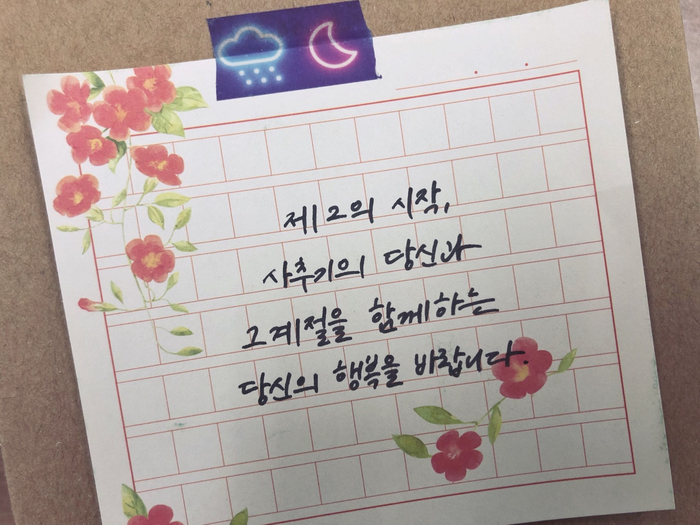 제2의 시작,
사추기의 당신과
그 계절을 함께하는
당신의 행복을 바랍니다.